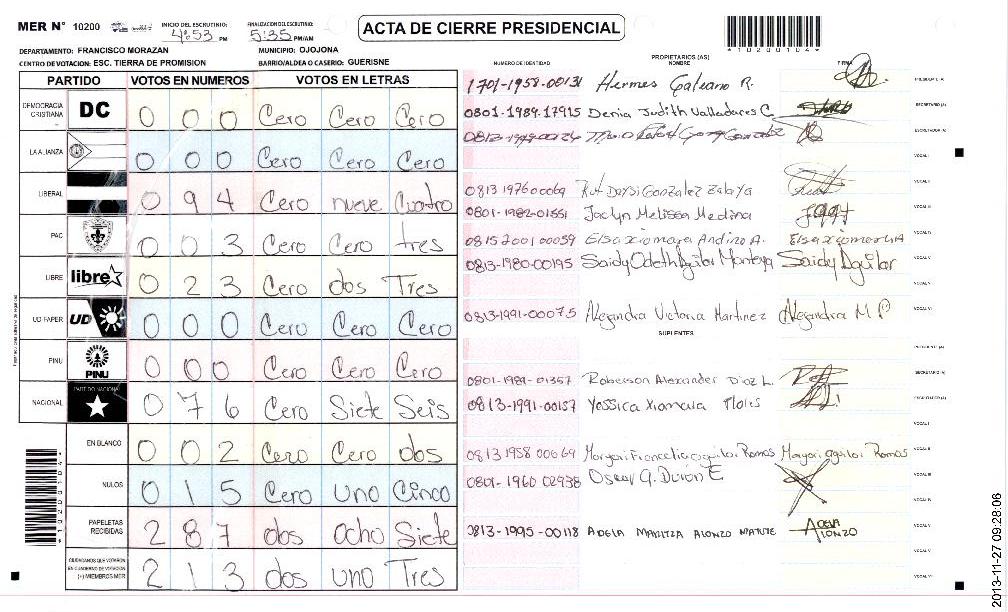 MER Nº 10200 INICIO DEL ESCRUTINIO: 4:53 PM FINALIZACION DEL ESCRUTINIO: 5:35 PM/AM
ACTA DE CIERRE PRESIDENCIAL
*10200104*
DEPARTAMENTO: FRANCISCO MORAZAN MUNICIPIO: OJOJONA
CENTRO DE VOTACION: ESC. TIERRA DE PROMISION BARRIO/ALDEA O CASERIO: GUERISNE
PARTIDO VOTOS EN NUMEROS VOTOS EN LETRAS
DEMOCRACIA CRISTIANA DC 0 0 0 Cero Cero Cero
LA ALIANZA 0 0 0 Cero Cero Cero
LIBERAL 0 9 4 Cero nueve Cuatro
PAC 0 0 3 Cero Cero tres
LIBRE libre 0 2 3 Cero dos Tres
UD-FAPER UD 0 0 0 Cero Cero Cero
PINU PINU 0 0 0 Cero Cero Cero
NACIONAL PARTIDO NACIONAL 0 7 6 Cero Siete Seis
EN BLANCO 0 0 2 Cero Cero dos
NULOS 0 1 5 Cero uno Cinco
PAPELETAS RECIBIDAS 2 8 7 dos Ocho Siete
CIUDADANOS QUE VOTARON EN CUADERNO DE VOTACION (+) MIEMBROS MER 2 1 3 dos uno Tres
NUMERO DE IDENTIDAD PROPIETARIOS (AS) NOMBRE FIRMA
1701-1958-00131 Hermes Galeano R. PRESIDENTE (A)
0801-1989-17915 Denia Judith Valladares C. SECRETARIO (A)
ESCRUTADOR (A)
VOCAL I
0813 1976 00069 Rut Daysi Gonzalez Zelaya VOCAL II
0801-1982-01551 Joclyn Melissa Medina VOCAL III
0815 2001 00059 Elsa xiomara Andino A. VOCAL IV
0813-1980-00195 Saidy Odeth Aguilar Montoya Saidy Aguilar VOCAL V
0813-1991-00075 Alejandra Victoria Martinez Alejandra M P VOCAL VI
SUPLENTES
PRESIDENTE (A)
0801-1989-01357 Roberson Alexander Diaz L. SECRETARIO (A)
0813-1991-00157 Yessica Xiomara Flores ESCRUTADOR (A)
VOCAL I
0813 1958 00069 Margori Francelia aguilar Ramos Margori aguilar Ramos VOCAL II
0801-1960 02938 Oscar A. Duron E VOCAL III
VOCAL IV
0813-1995-00118 ADELA MARITZA ALONZO MATUTE ADELA ALONZO VOCAL V
VOCAL VI
2013-11-27 09:28:06